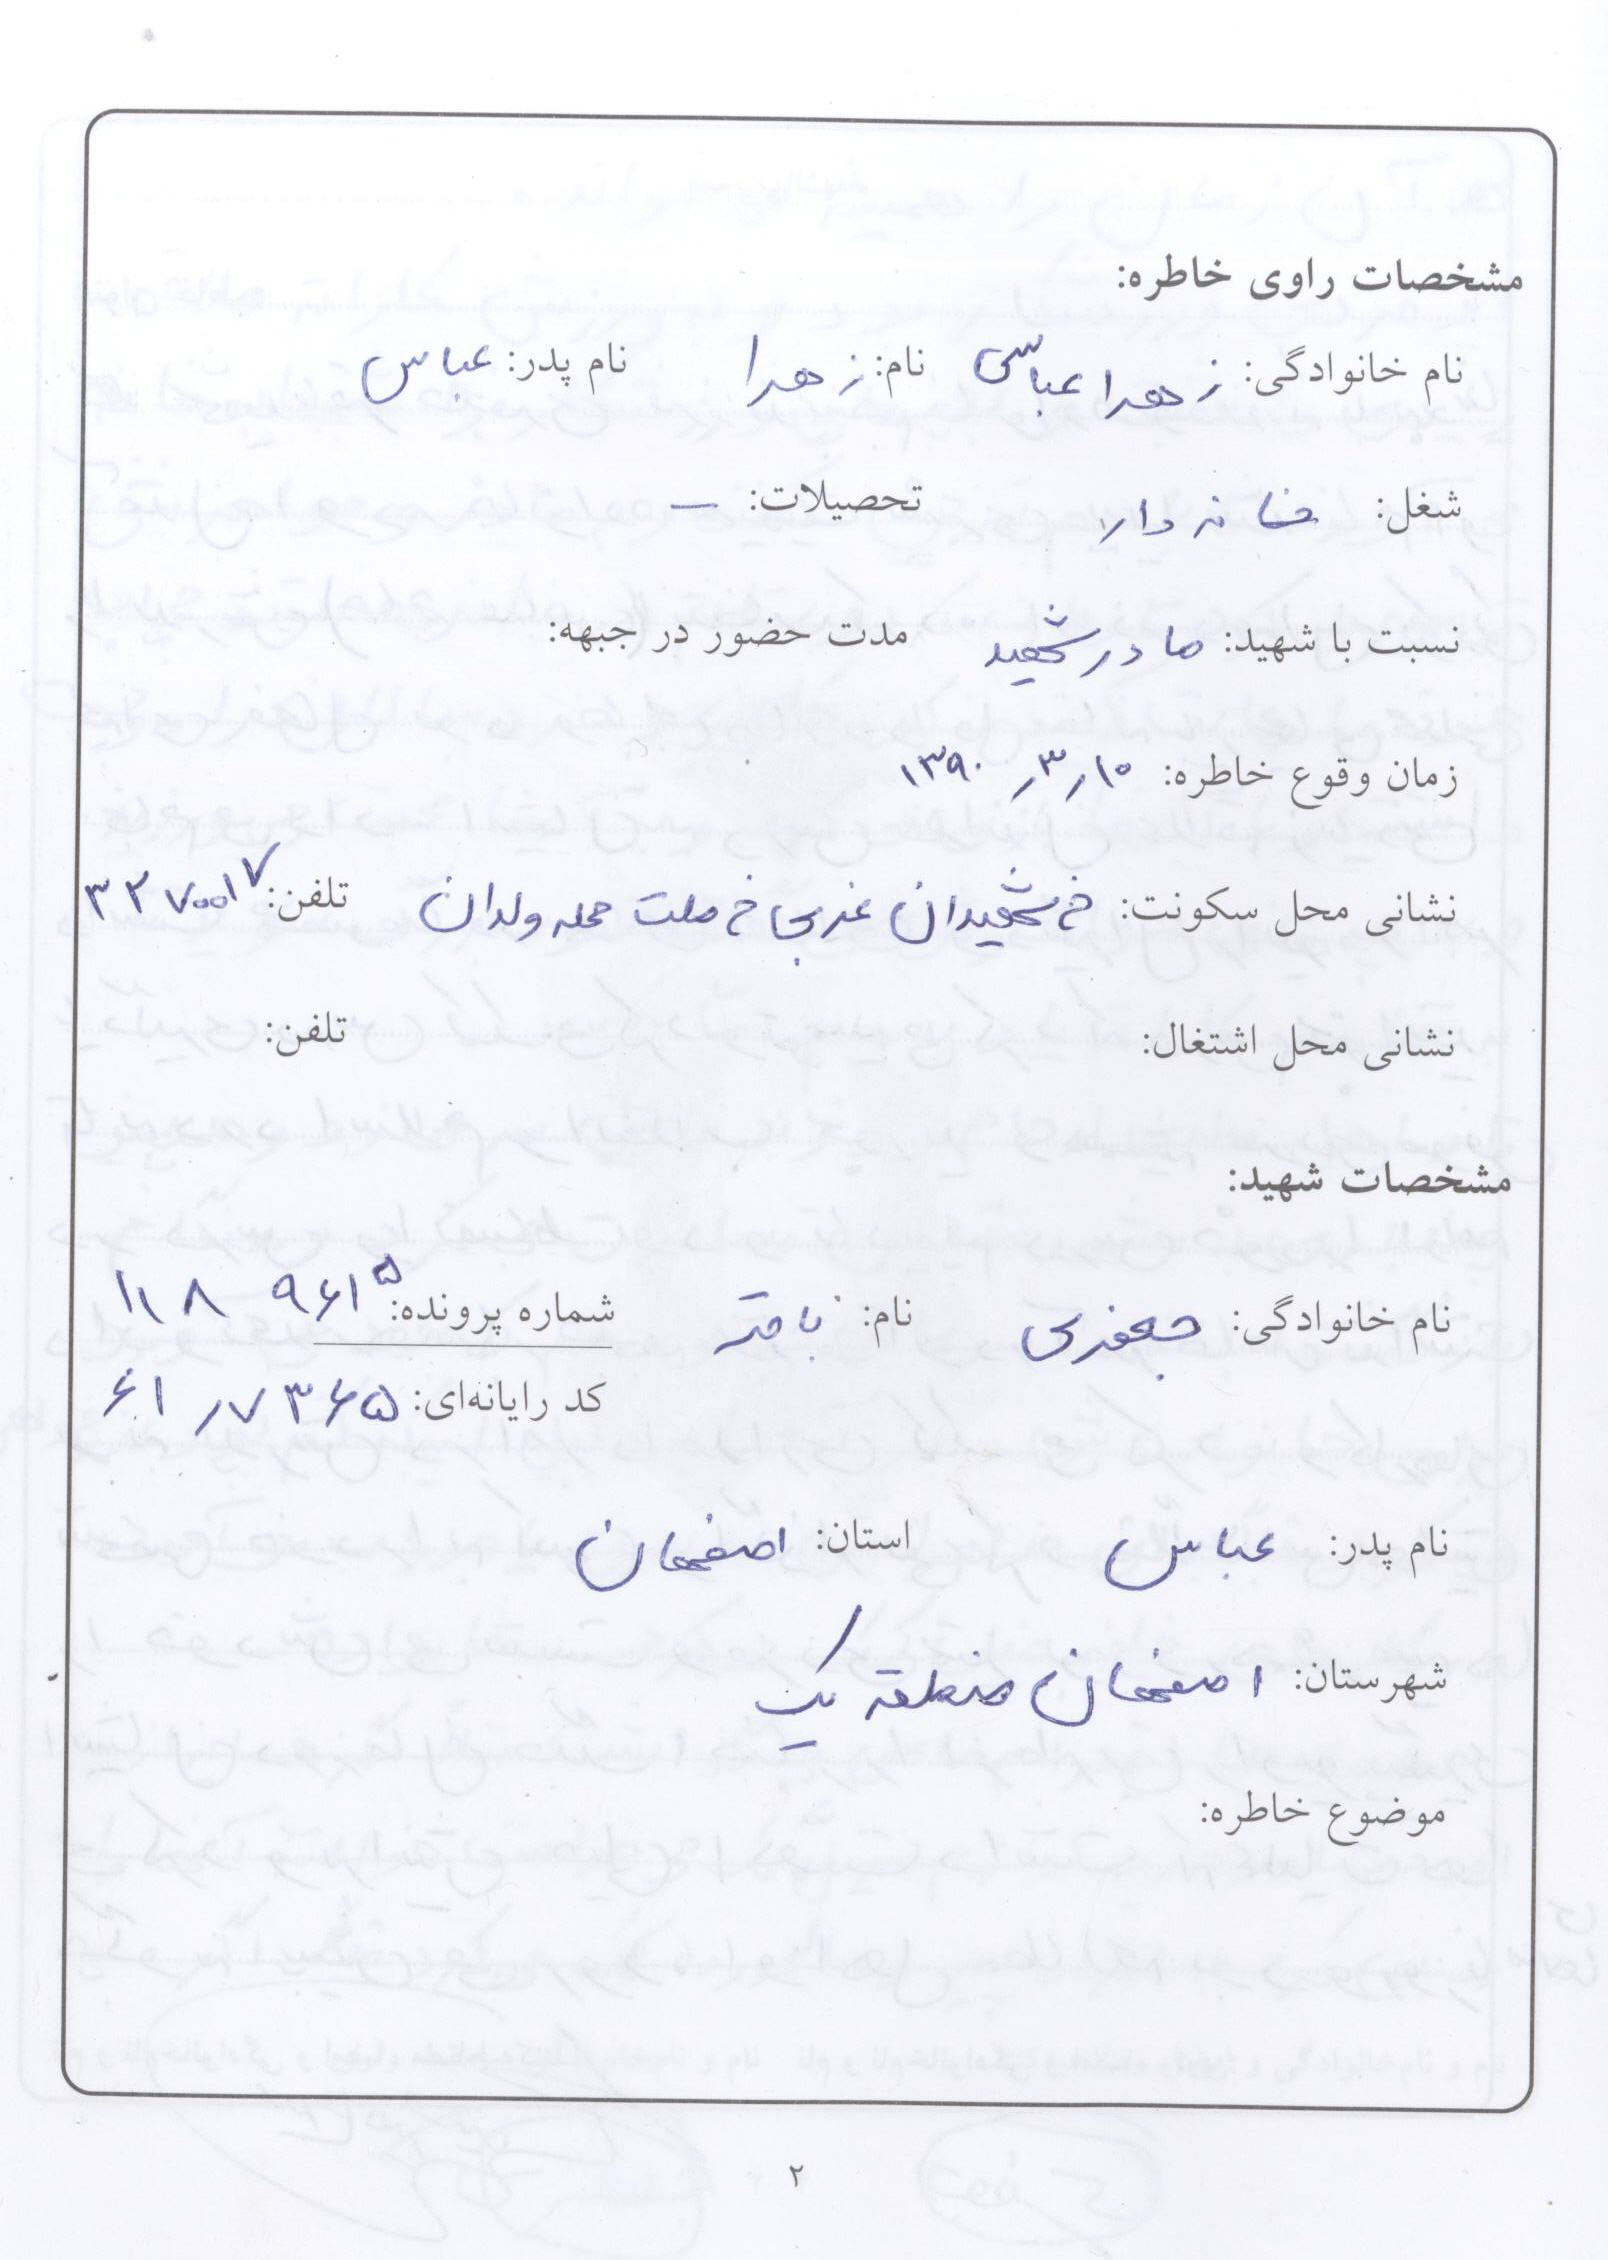 مشخصات راوی خاطره:
نام خانوادگی: زهرا عباسی نام: زهرا نام پدر: عباس
شغل: خانه دار تحصیلات: –
نسبت با شهید: مادر شهید مدت حضور در جبهه:
زمان وقوع خاطره: ۱۳۹۰/۳/۱۰
نشانی محل سکونت: خ شهیدان غربی خ ملت محله ولدان تلفن: ۳۲۷۰۰۱۷
نشانی محل اشتغال: تلفن:
مشخصات شهید:
نام خانوادگی: جعفری نام: باقر شماره پرونده: ۱۱۸ ۹۶۱۵
کد رایانه‌ای: ۶۱/۷۳۶۵
نام پدر: عباس استان: اصفهان
شهرستان: اصفهان منطقه یک
موضوع خاطره:
۲